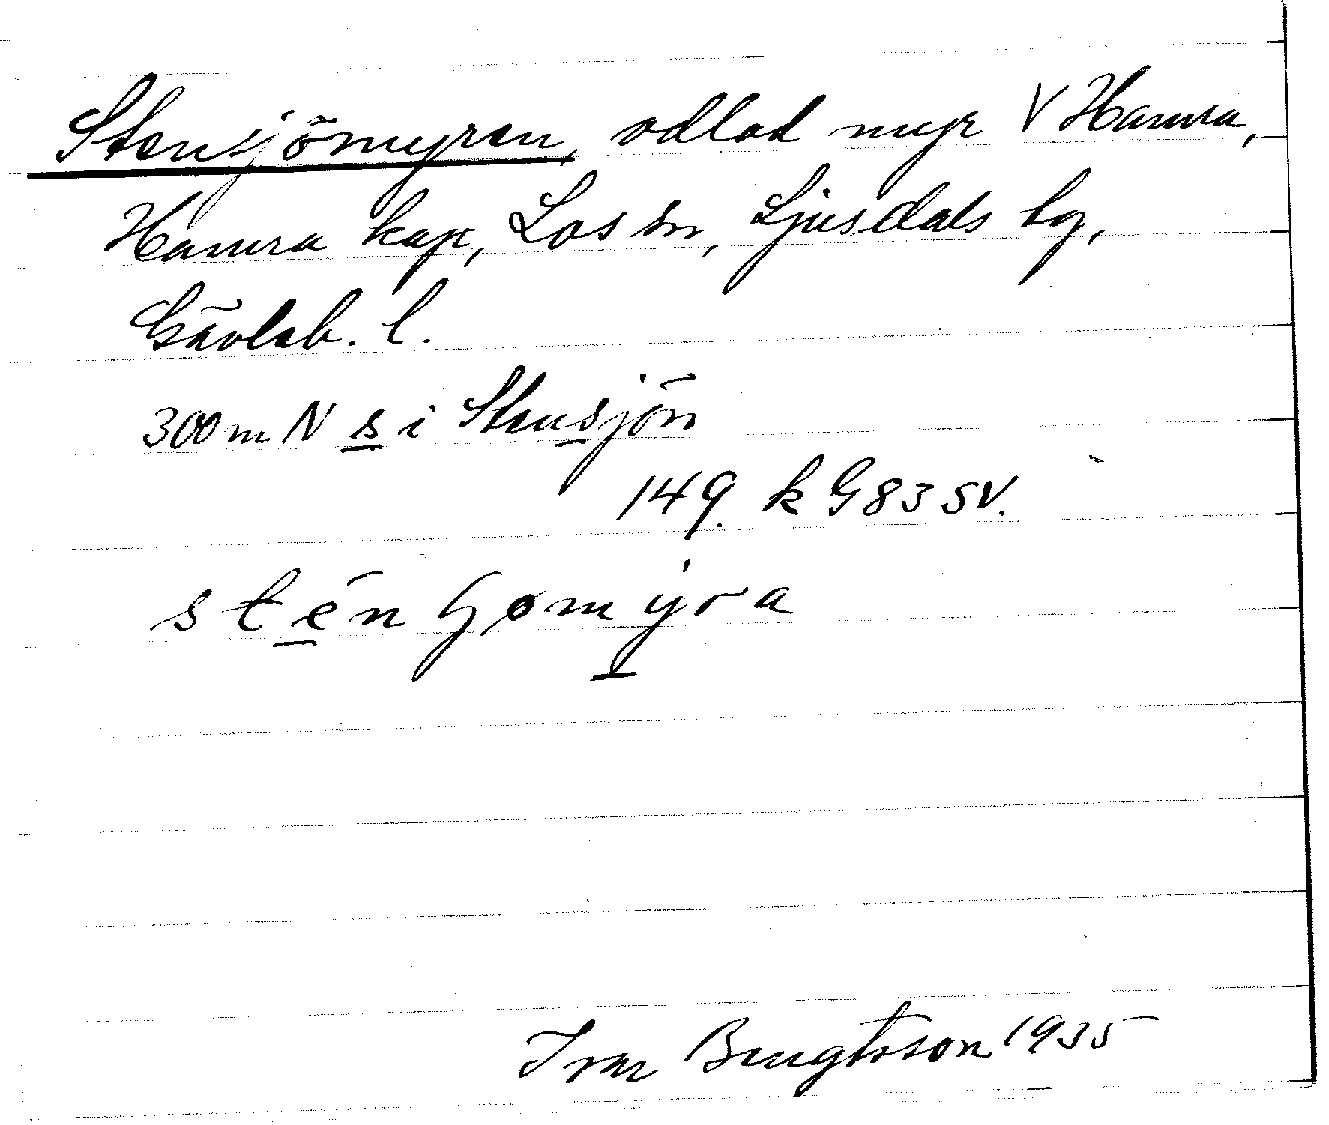 Stensjömyren, odlad myr V Hamra,
Hamra kap, Los sn, Ljusdals tg,
Gävleb. l.
300 m N s i Stensjön
149. k G 83 SV.
sténʃjømyra
Ivar Bengtsson 1935